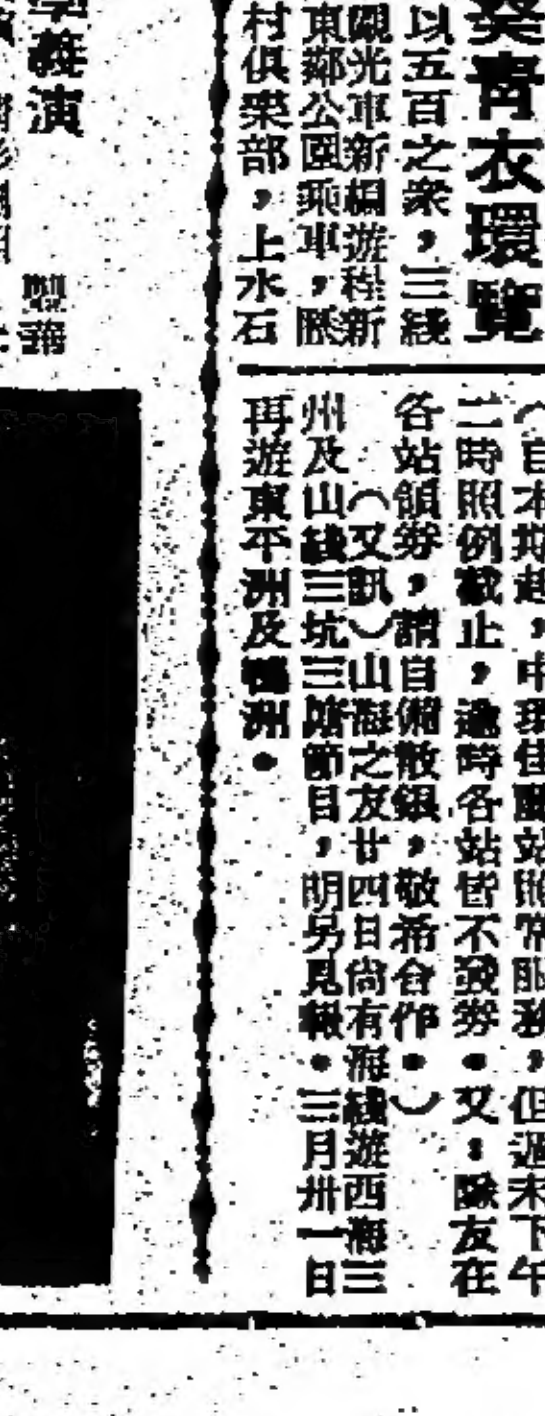 葵青衣環覽
以五百之衆，三綫
觀光車新編遊程新
東鄉公園乘車，
村俱樂部，上水石
（自本期起，中環佳 站照常服務，但週末下午
二時照例截止，過時各站皆不發券。又：隊友在
各站領券，請自備散銀，敬希合作。）
（又訊）山海之友廿四日尚有海綫遊西海三
州及山綫三坑三 節目，明另見報。三月卅一日
再遊東平洲及鴨洲。
義演